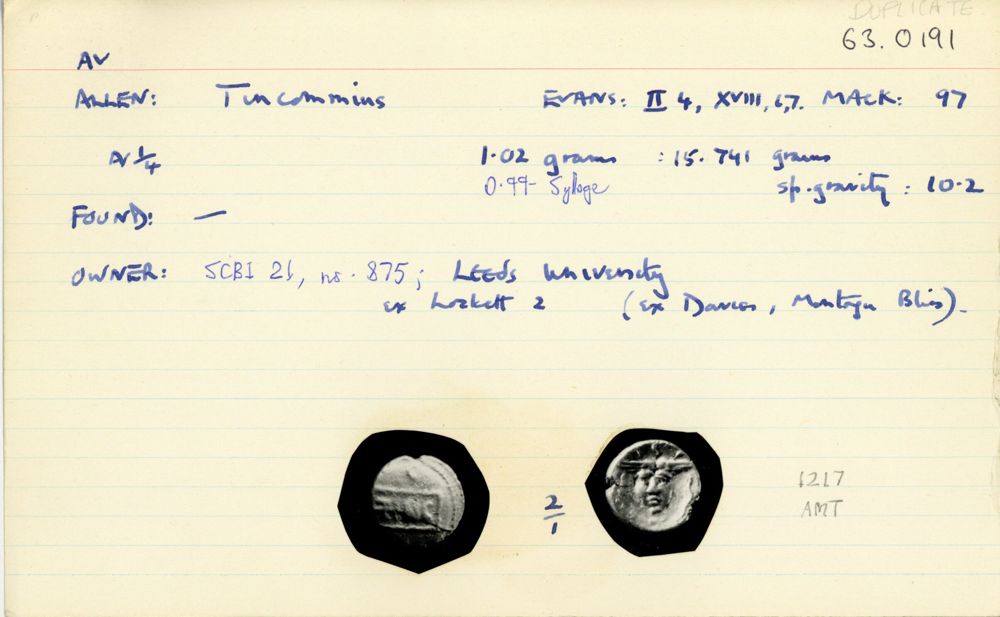 DUPLICATE
63.0191
AV
ALLEN: Tincommius EVANS: II 4, XVIII, 6,7. MACK: 97
AV 1/4 1.02 grams : 15.741 grains
0.99 Sylloge sp. gravity : 10.2
FOUND: —
OWNER: SCBI 21, no. 875; LEEDS University
ex Lockett 2 (ex Davies, Montagu Bliss).
2/1
1217
AMT